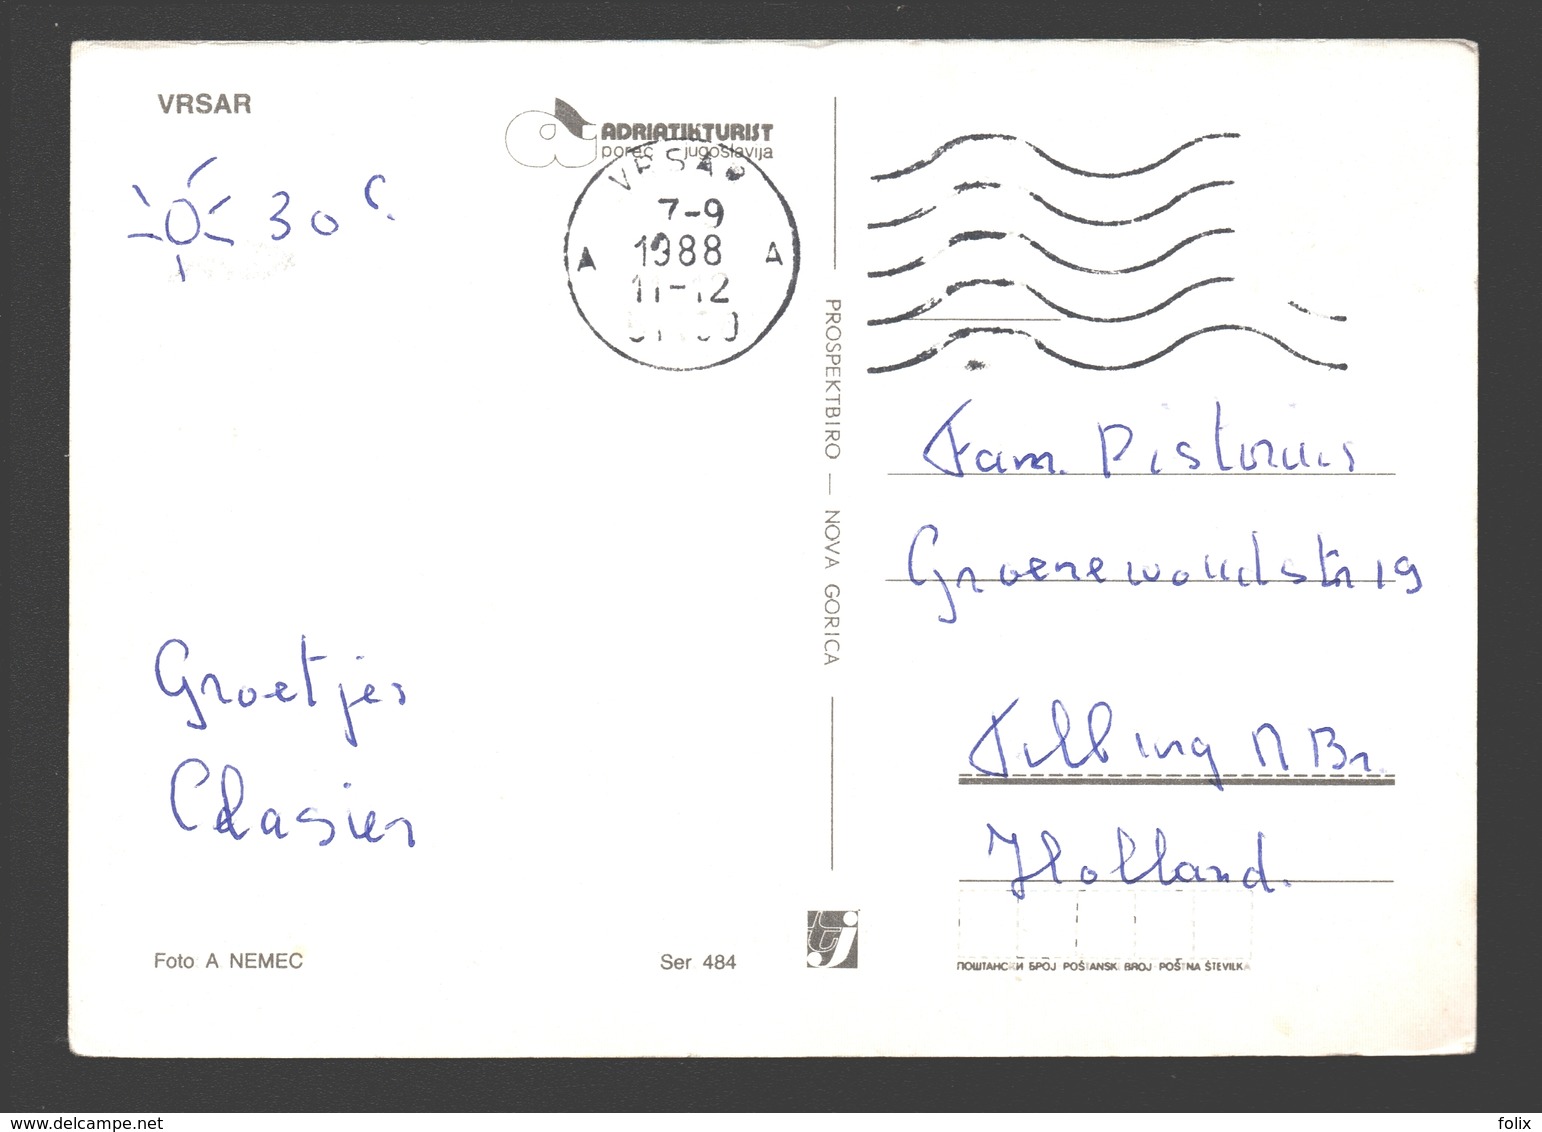 VRSAR
ADRIATIKTURIST
poreč jugoslavija
VRSAR
7-9
1988
A A
11-12
30 °C
Groetjes
Clasien
Foto A NEMEC
Ser 484
PROSPEKTBIRO — NOVA GORICA
tj
Fam. Pistorius
Groenewoudstr 19
Tilburg N Br.
Holland.
ПОШТАНСКИ БРОЈ POŠTANSKI BROJ POŠTNA ŠTEVILKA
www.delcampe.net
folix